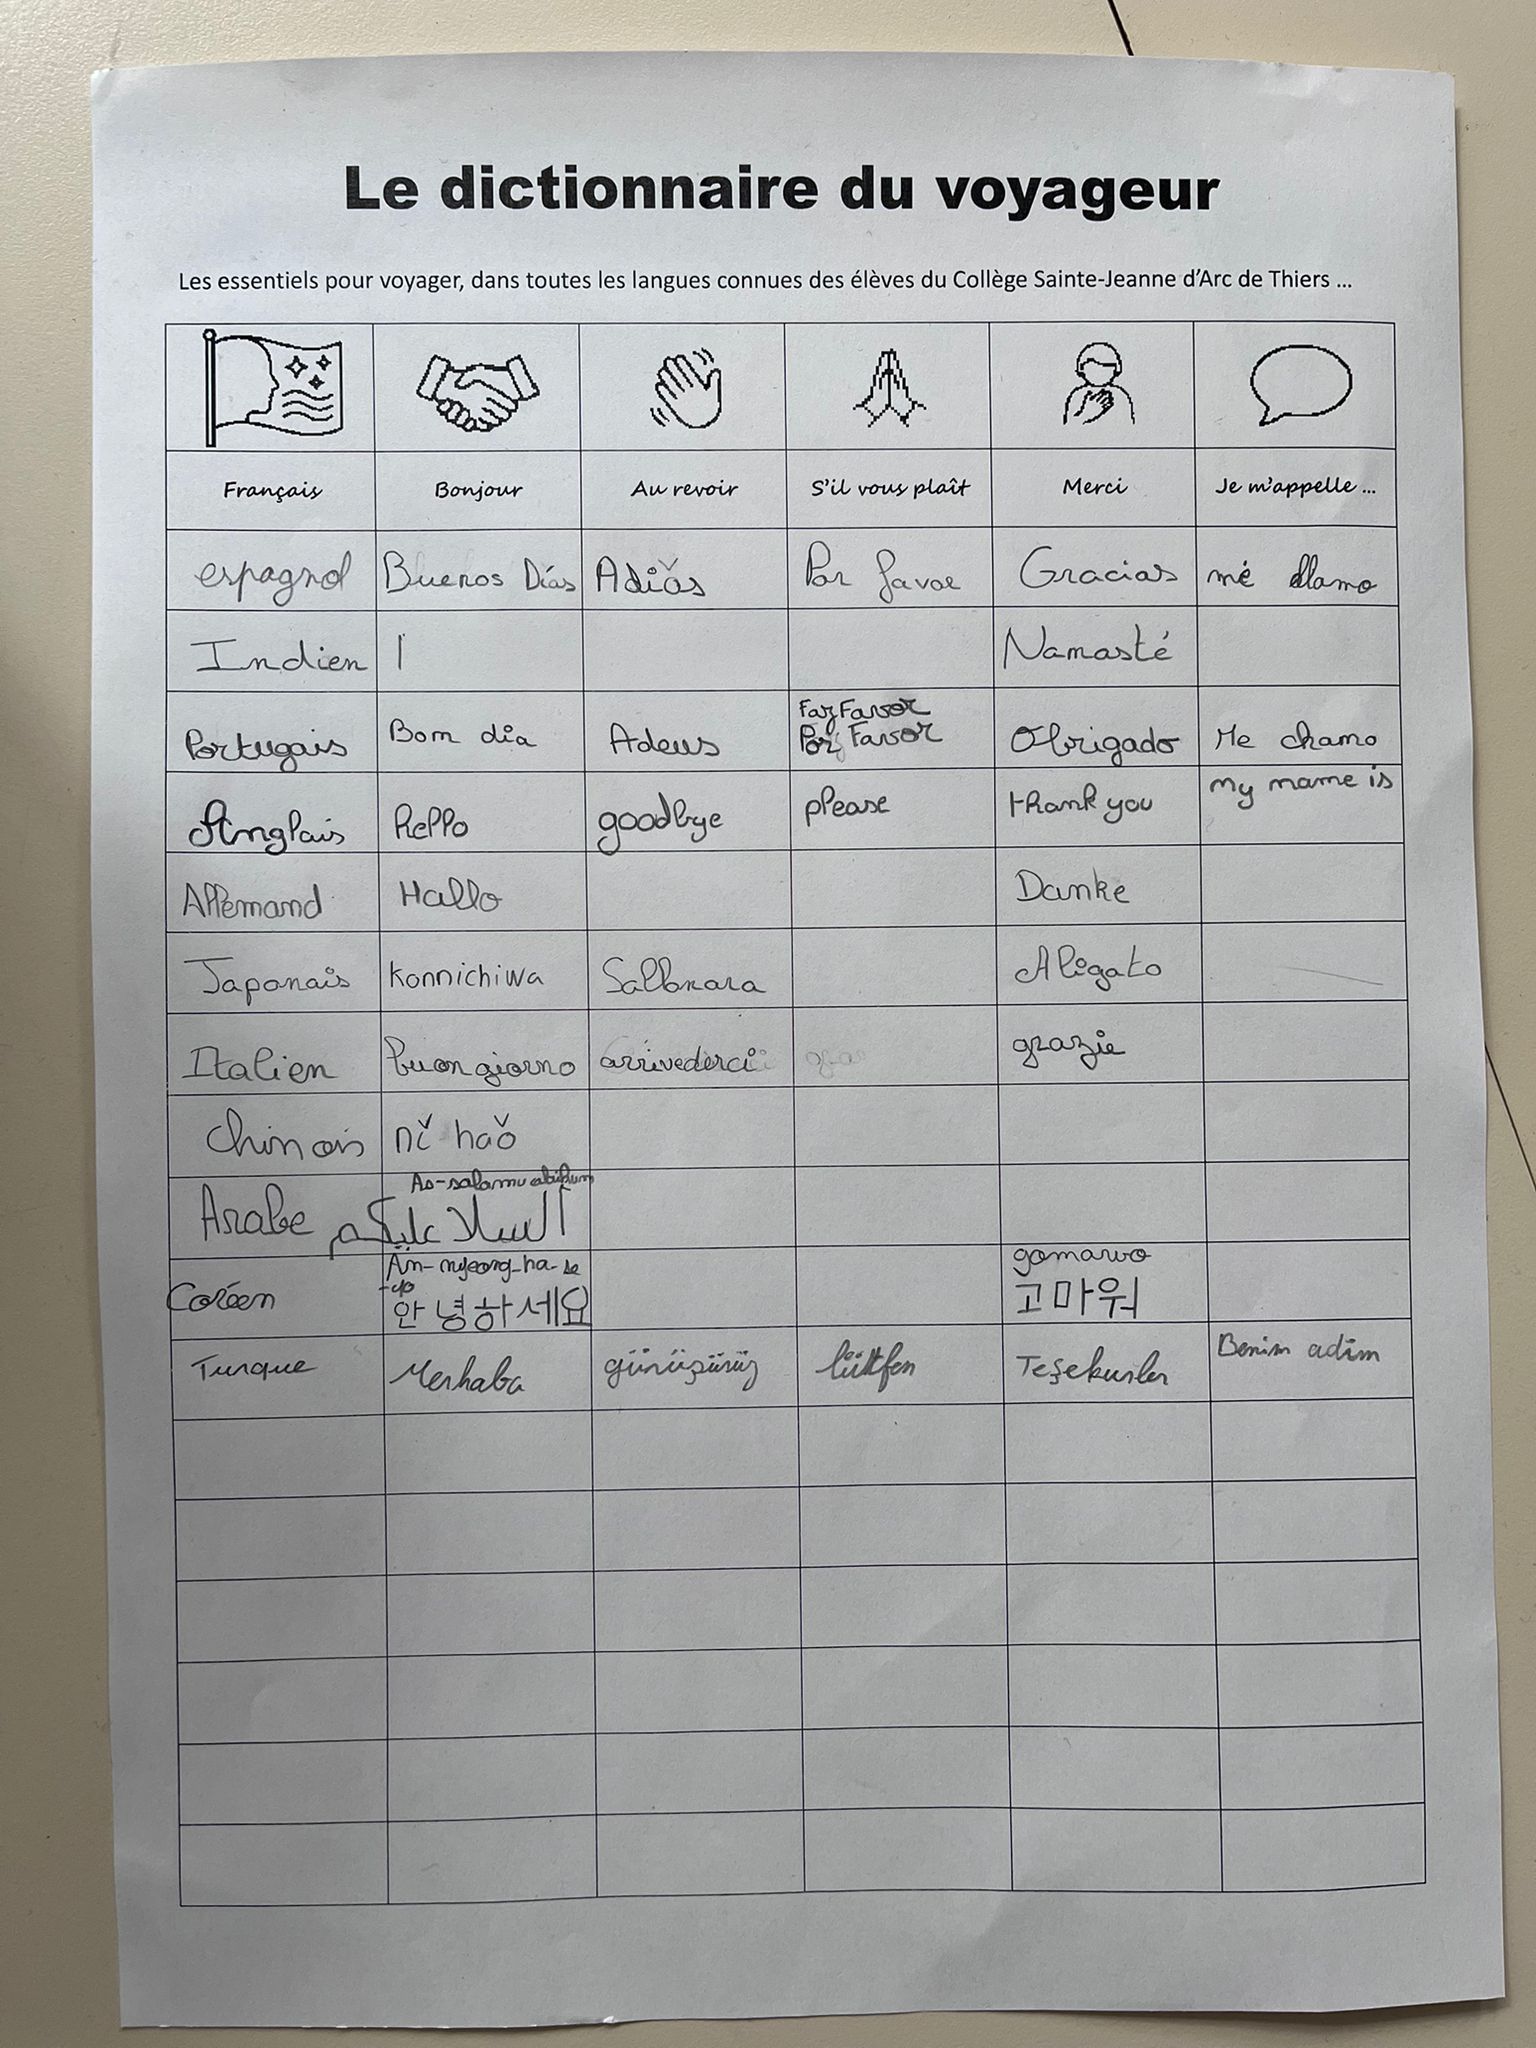 Le dictionnaire du voyageur
Les essentiels pour voyager, dans toutes les langues connues des élèves du Collège Sainte-Jeanne d'Arc de Thiers ...
Français Bonjour Au revoir S'il vous plaît Merci Je m'appelle ...
espagnol Buenos Días Adiǒs Por favor Gracias mé llamo
Indien Namasté
Faz Favor
Portugais Bom dia Adeus Por Favor Obrigado Me chamo
Anglais hello goodbye please thank you my name is
Allemand Hallo Danke
Japonais Konnichiwa Aligato
Italien buongiorno arrivederci grazie
Chinois nǐ haǒ
As-salamu
Arabe ألسلا عليكم
An-nyeong-ha-se gomawo
-yo
Coréen 안녕하세요 고마워
Turque Merhaba günüşürüz lütfen Teşekurler Benim adim